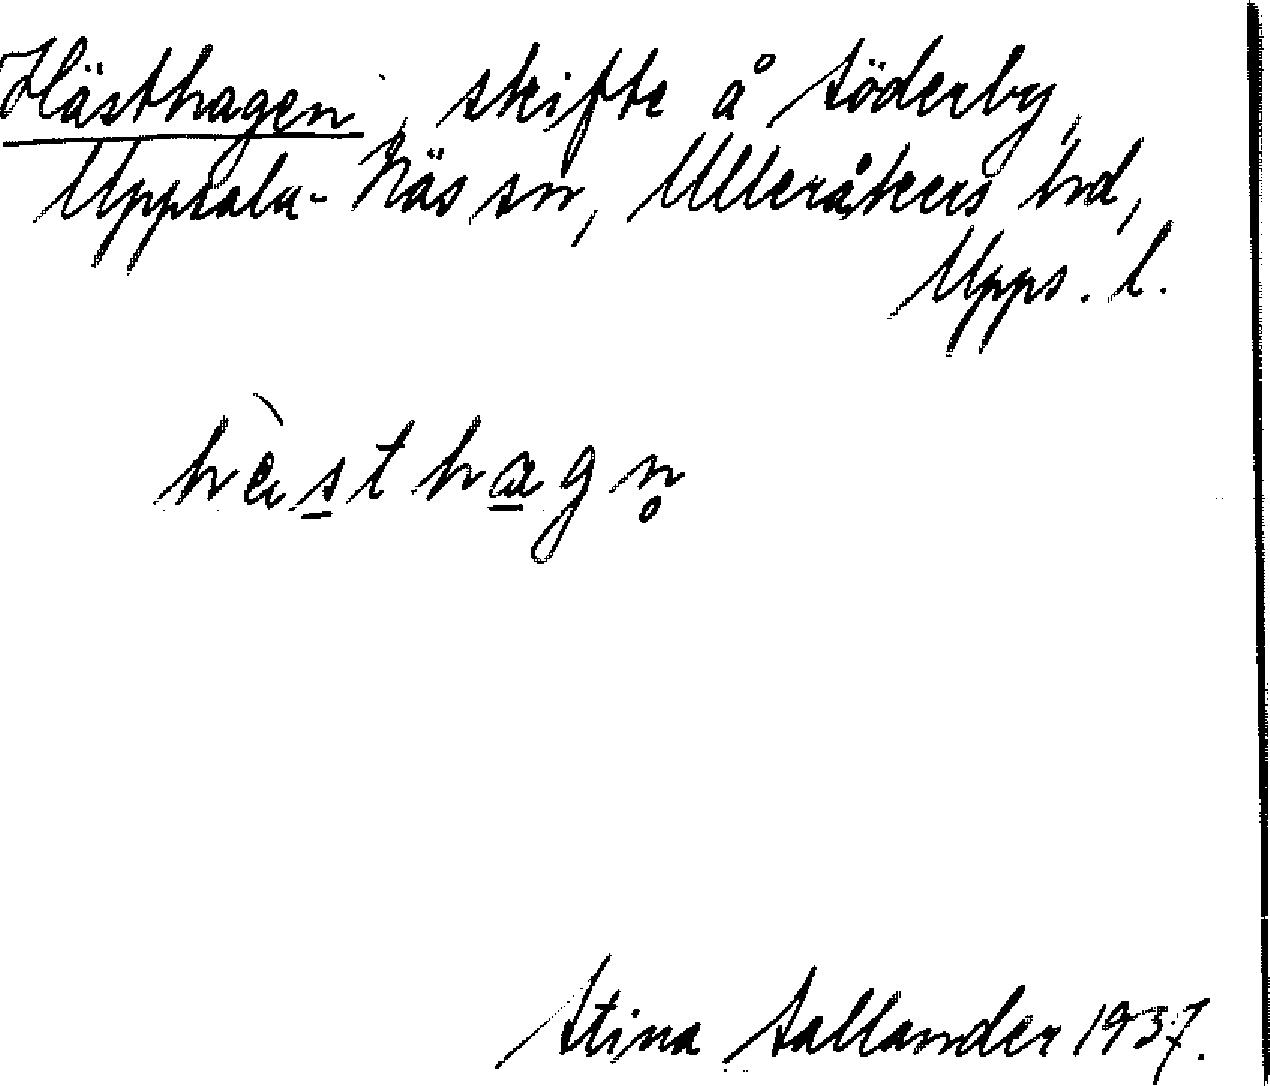 Hästhagen, skifte å Söderby,
Uppsala-Näs sn, Ulleråkers hd,
Upps. l.
hὲsthagn̥
Stina Sallander 1937.